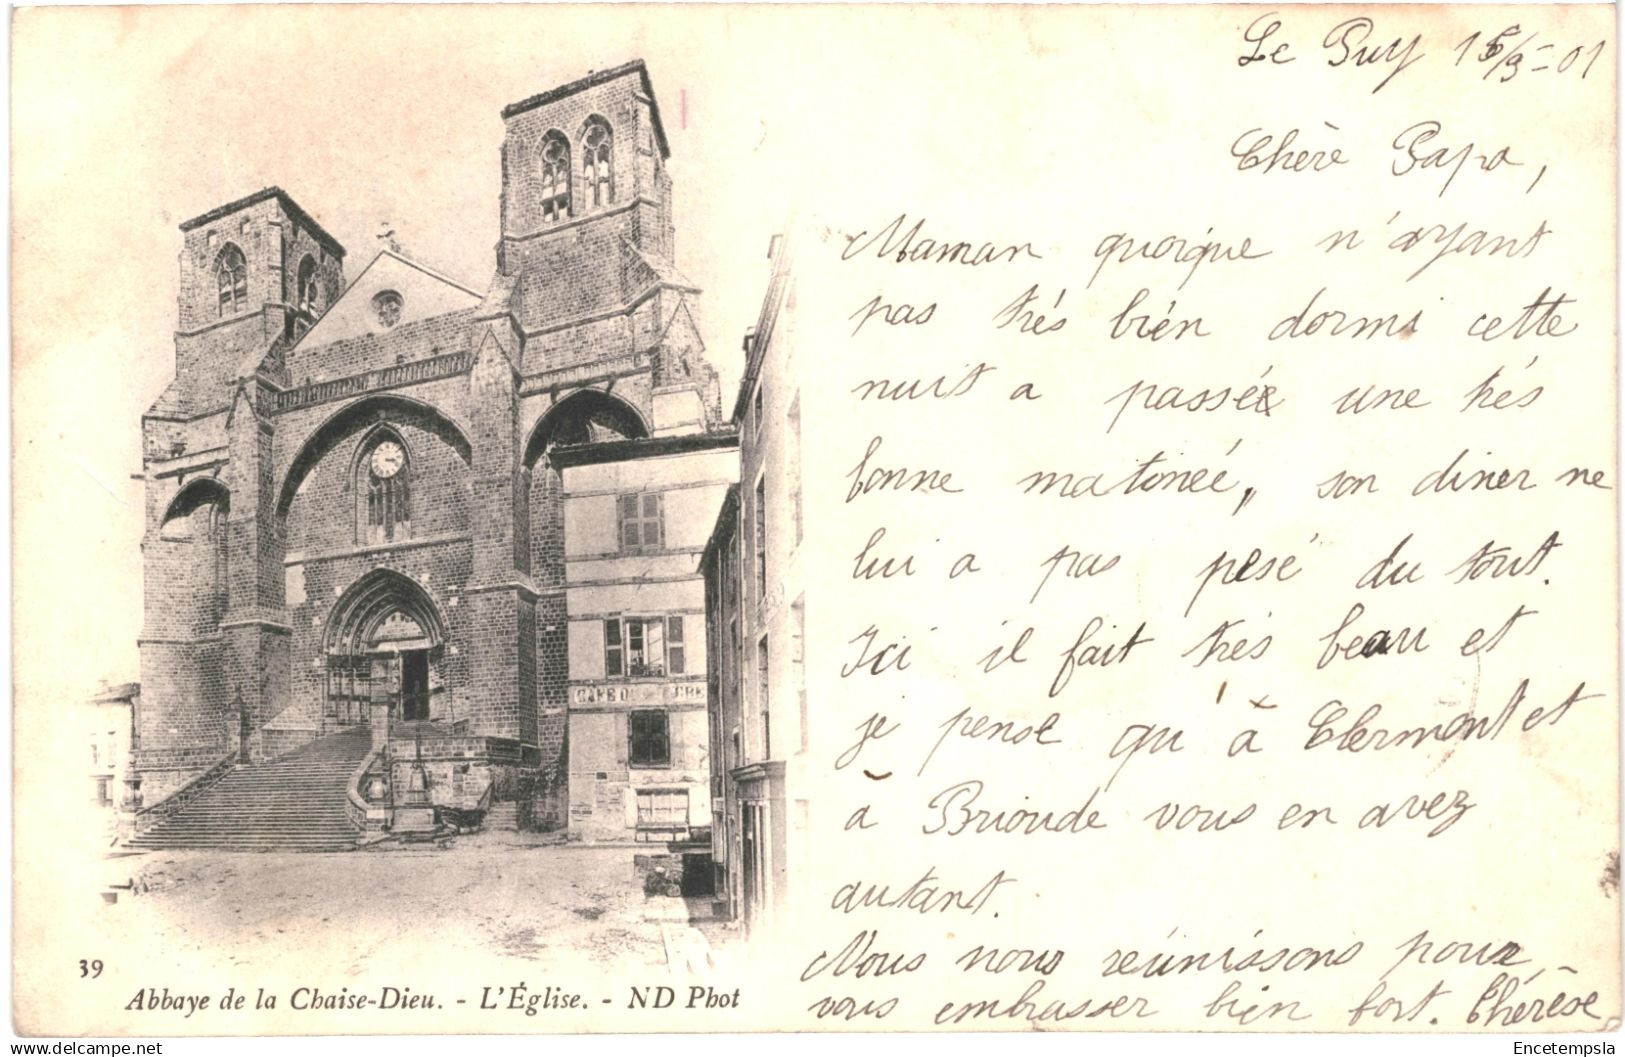 Le Puy 15/9-01
Chère Papa,
Maman quoique n'ayant
pas très bien dormi cette
nuit a passé une très
bonne matinée, son diner ne
lui a pas pesé du tout.
Ici il fait très beau et
je pense qu'à Clermont et
à Brioude vous en avez
autant.
Nous nous réunissons pour
vous embrasser bien fort. Thérèse
CAFE DU
39
Abbaye de la Chaise-Dieu. - L'Église. - ND Phot
Encetempsla
delcampe.net